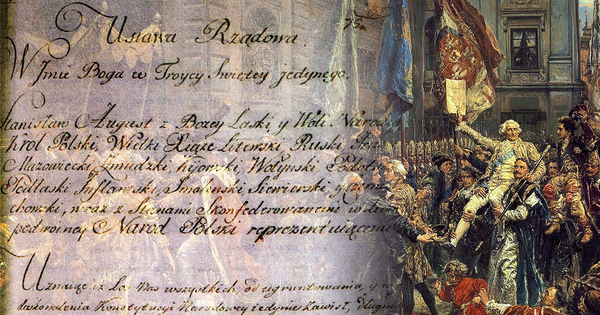 Ustawa Rządowa.
W Imie Boga w Troycy Swiętey jedynego.
Stanisław August z Bozey Łaski y Woli Narod
Krol Polski, Wielki Xiąże Litewski, Ruski,
Mazowiecki, Zmudzki, Kyiowski, Wołynski, Podol
Podlaski, Inflantski, Smolenski, Siewierski, y Czerni
chowski, wraz z Stanami Skonfederowanemi w
podwoiney Narod Polski reprezentuiącemi
Uznaiąc iż Los nas wszystkich, od ugruntowania, y w
doskonalenia Konstytucyi Narodowey iedynie zawisł, długim